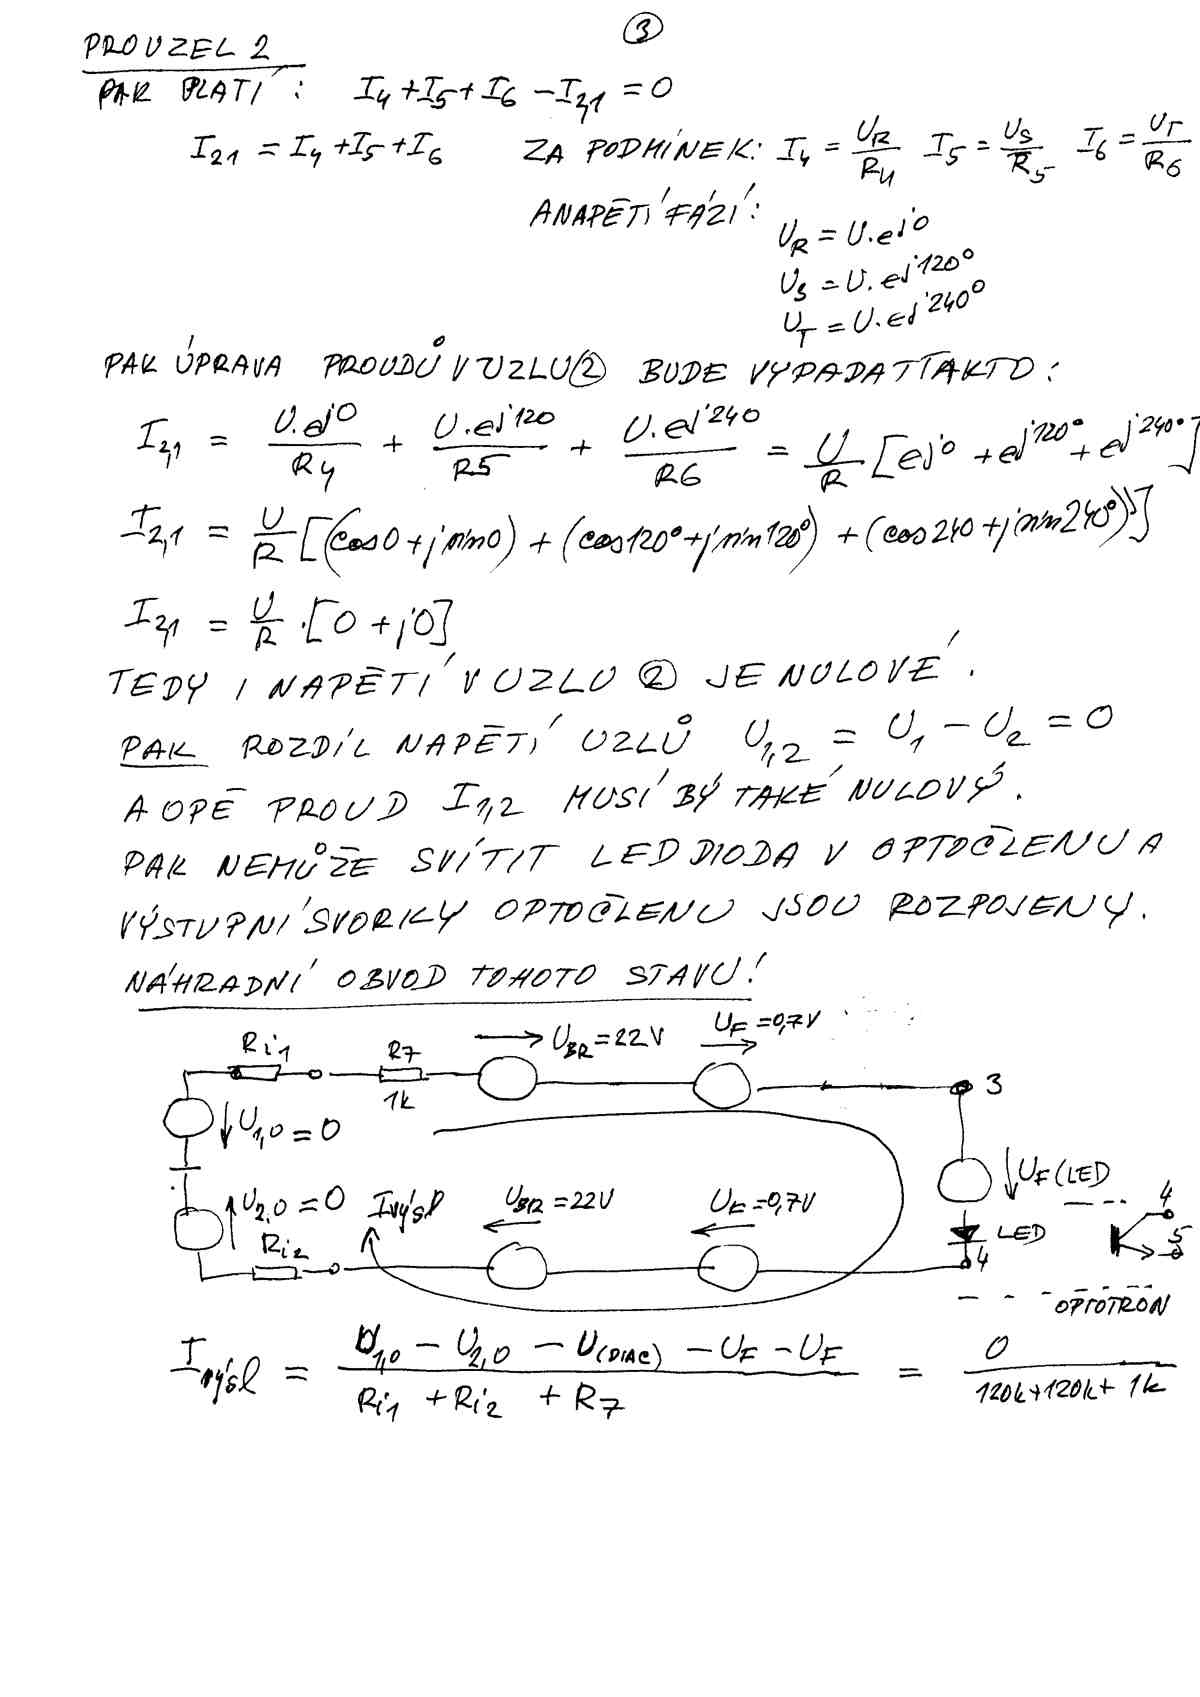 ③
PRO UZEL 2
PAK PLATÍ: I4 + I5 + I6 - I2,1 = 0
I21 = I4 + I5 + I6 ZA PODMÍNEK: I4 = UR/R4 I5 = US/R5 I6 = UT/R6
A NAPĚTÍ FÁZÍ:
UR = U.e^j0
US = U.e^j120°
UT = U.e^j240°
PAK ÚPRAVA PROUDŮ V UZLU ② BUDE VYPADAT TAKTO:
I2,1 = U.e^j0/R4 + U.e^j120/R5 + U.e^j240/R6 = U/R [e^j0 + e^j120° + e^j240°]
I2,1 = U/R [(cos0 + j sin0) + (cos120° + j sin120°) + (cos240 + j sin240°)]
I2,1 = U/R .[0 + j0]
TEDY I NAPĚTÍ V UZLU ② JE NULOVÉ.
PAK ROZDÍL NAPĚTÍ UZLŮ U1,2 = U1 - U2 = 0
A OPĚ PROUD I1,2 MUSÍ BÝ TAKÉ NULOVÝ.
PAK NEMŮŽE SVÍTIT LED DIODA V OPTOČLENU A
VÝSTUPNÍ SVORKY OPTOČLENU JSOU ROZPOJENY.
NÁHRADNÍ OBVOD TOHOTO STAVU!
Ri1 R7 UBR = 22V UF = 0,7V
1k 3
U1,0 = 0
UF(LED
U2,0 = 0 Ivýsl UBR = 22V UF = 0,7V 4
Ri2 LED 5
4
OPTOTRON
Ivýsl = U1,0 - U2,0 - U(DIAC) - UF - UF / Ri1 + Ri2 + R7 = 0 / 120k + 120k + 1k